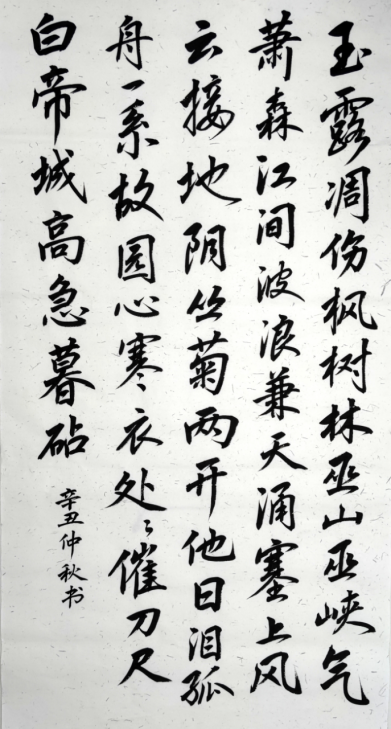 玉露凋伤枫树林巫山巫峡气
萧森江间波浪兼天涌塞上风
云接地阴丛菊两开他日泪孤
舟一系故园心寒衣处々催刀尺
白帝城高急暮砧
辛丑仲秋书